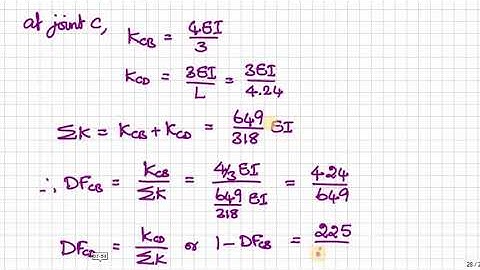 at joint C, K_CB = 4EI/3
K_CD = 3EI/L = 3EI/4.24
ΣK = K_CB + K_CD = 649/318 EI
∴ DF_CB = K_CB/ΣK = (4/3 EI)/(649/318 EI) = 424/649
DF_CD = K_CD/ΣK or 1 - DF_CB = 225/